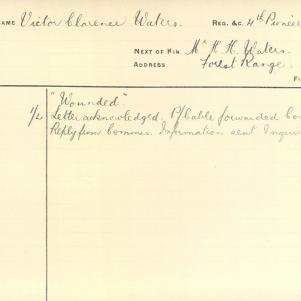 NAME Victor Clarence Waters. REG. &C. 4th Pioneer
NEXT OF KIN Mr H. H. Waters.
ADDRESS Forest Range.
F
"Wounded"
1/2 Letter acknowledged. P/Cable forwarded Com
Reply from Commrs. Information sent Enquir